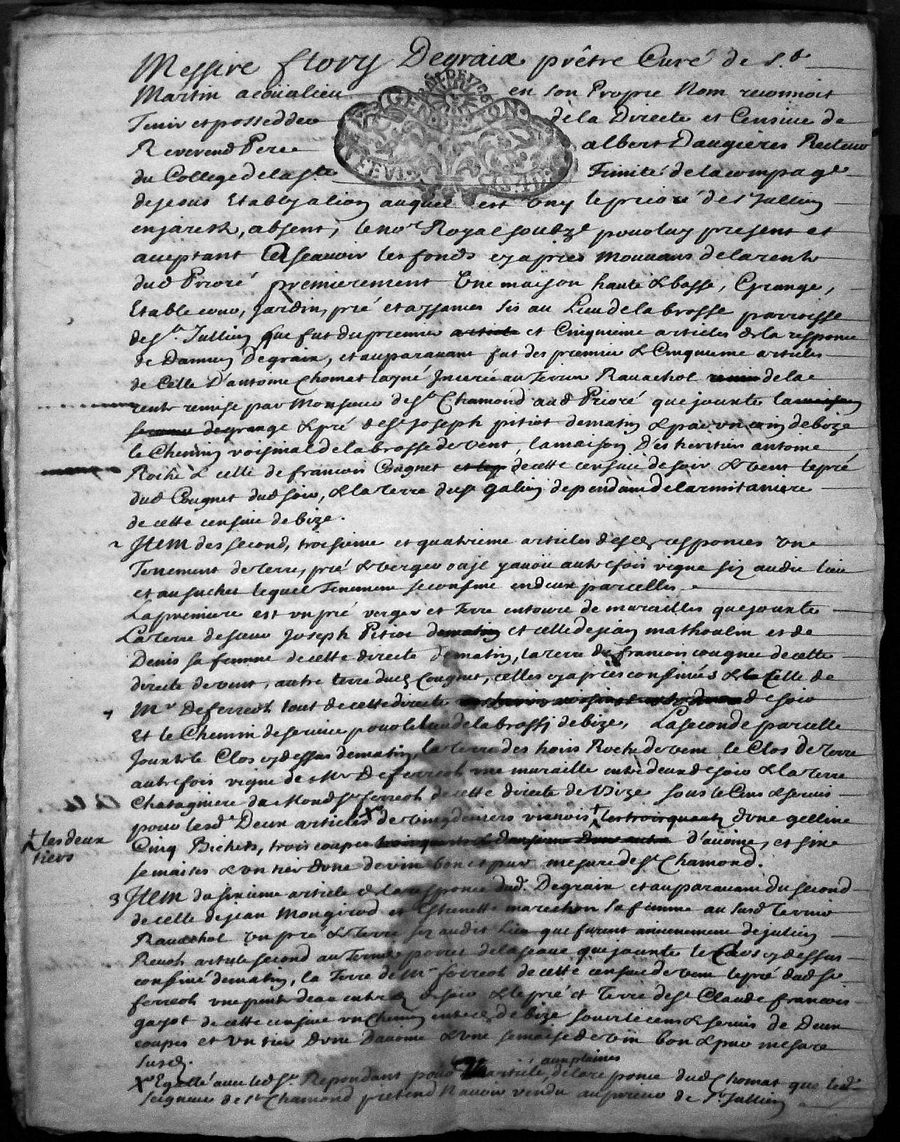 Messire flory Degraix prêtre Curé de St
Martin acoualieu en son Propre Nom reconnoit
Tenir et posseder de la Directe et Censive de
Reverend Pere albert Daugieres Recteur
du College de la Ste Trinité de la compage
de jesus Etably a lion auquel est uny le prioré de St Jullien
en jarest, absent, le nore Royal soubzé pour luy present et
acceptant Ascavoir les fonds cy apres Mouvans de la rente
dud Prioré premierement Une maison haute & basse, Grange,
Etableries, Jardin, pré et aysances sis au Lieu de la brosse parroisse
de St Jullien que fut du premier et Cinquieme articles de la responce
de Damien Degraix, et auparavant fut des premier & Cinquieme articles
de Celle D'antoine Chomat layné Inceréé au Terrier Ravachol de la
rente remise par Monsieur de St Chamond aud Prioré que jouxte
grange & pré de Sr joseph pitiot de matin & par un coin de bize
le Chemin voisinal de la brosse de vent, la maison Des heritiers antoine
Roche & celle de francois Cougnet de cette censive de soir & vent le pré
dud Cougnet dud soir, & la terre du Sr galien dependant de
de cette censive de bize.
2 Item des second, troisieme et quatrieme articles desd responces Une
Tenement de terre, pré & verger ou il y avoit autrefois vigne sis audit lieu
et au suchet lequel Tenement se confine en deux parcelles
La premiere est un pré verger et Terre entouré de murailles que jouxte
La terre de Joseph Pitiot et celle de jean mathoulin et de
Denis sa femme de cette directe de matin, la terre de francois cougnet de cette
directe de vent, autre terre dud Cougnet, celles cy apres confinés & celle de
Mr Deferreol tout de cette directe de soir
Et le Chemin de service pour le lieu de la brosse de bize, La seconde parcelle
Jouxte le Clos cy dessus de matin, la terre des hoirs Roche de vent le Clos de terre
autrefois vigne de Mr Deferreol une muraille entre deux de soir & la terre
Chatagniere da Mond Sr ferreol de cette directe de Bize sous le Cens & servis
pour lesd Deux articles X de vingt deniers viennois + les trois quarts d'une gelline
+ les deux
tiers
Cinq Bichets, trois coupes d'avoine, et six
semaises & un tier d'une de vin bon et pur mesure de St Chamond.
3 Item du sixieme article de la responce dud. Degraix et auparavant du second
de celle de jean Mongirod et Estiennette marechon sa femme au susd Terrier
Ravachol Un pré & terre sis audit Lieu que furent anciennement de julien
article second au Terrier que jouxte le Clos cy dessus
confiné de matin, la Terre de Mr ferreol de cette censive de vent le pré dud Sr
ferreol entre de soir & le pré et Terre de Sr Claude francois
gayot de cette censive un Chemin entre de bize sous le cens & servis de Deux
coupes et Un tier D'une D'avoine & Une semaise de vin bon & pur mesure
susd.
X Egallé avec led Sr Repondant pour article de la responce dud Chomat que led
Seigneur de St Chamond pretend n'avoir vendu au prieur de St Jullien